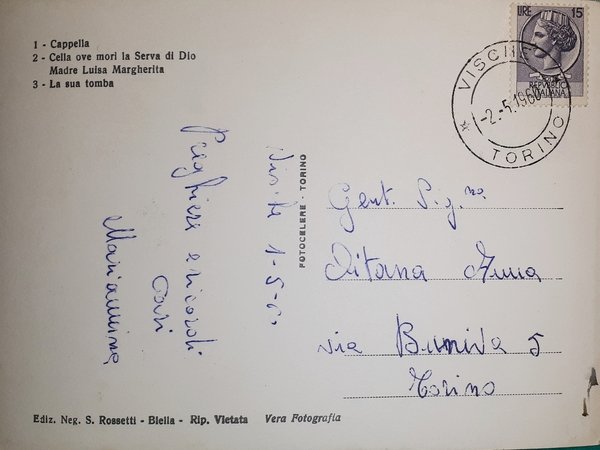 1 - Cappella
2 - Cella ove morì la Serva di Dio
Madre Luisa Margherita
3 - La sua tomba
LIRE 15
REPUBBLICA
ITALIANA
VISCHE
-2.-5.1960
TORINO
Vische 1-5-60
Preghiere e ricordi
cari
Mariannina
FOTOCELERE - TORINO
Gent. Sig.na
Ditana Anna
via Buniva 5
Torino
Ediz. Neg. S. Rossetti - Biella - Rip. Vietata Vera Fotografia